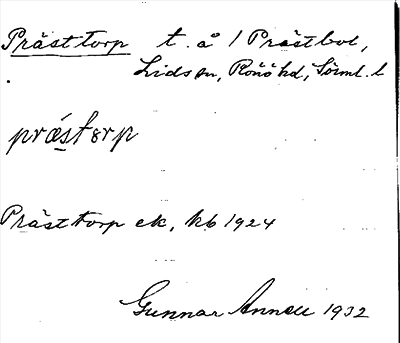 Prästtorp t. å / Prästbol,
Lids sn, Rönö hd, Söml. l
prǽstɔrp
Prästtorp ek, kb 1924
Gunnar Annell 1932